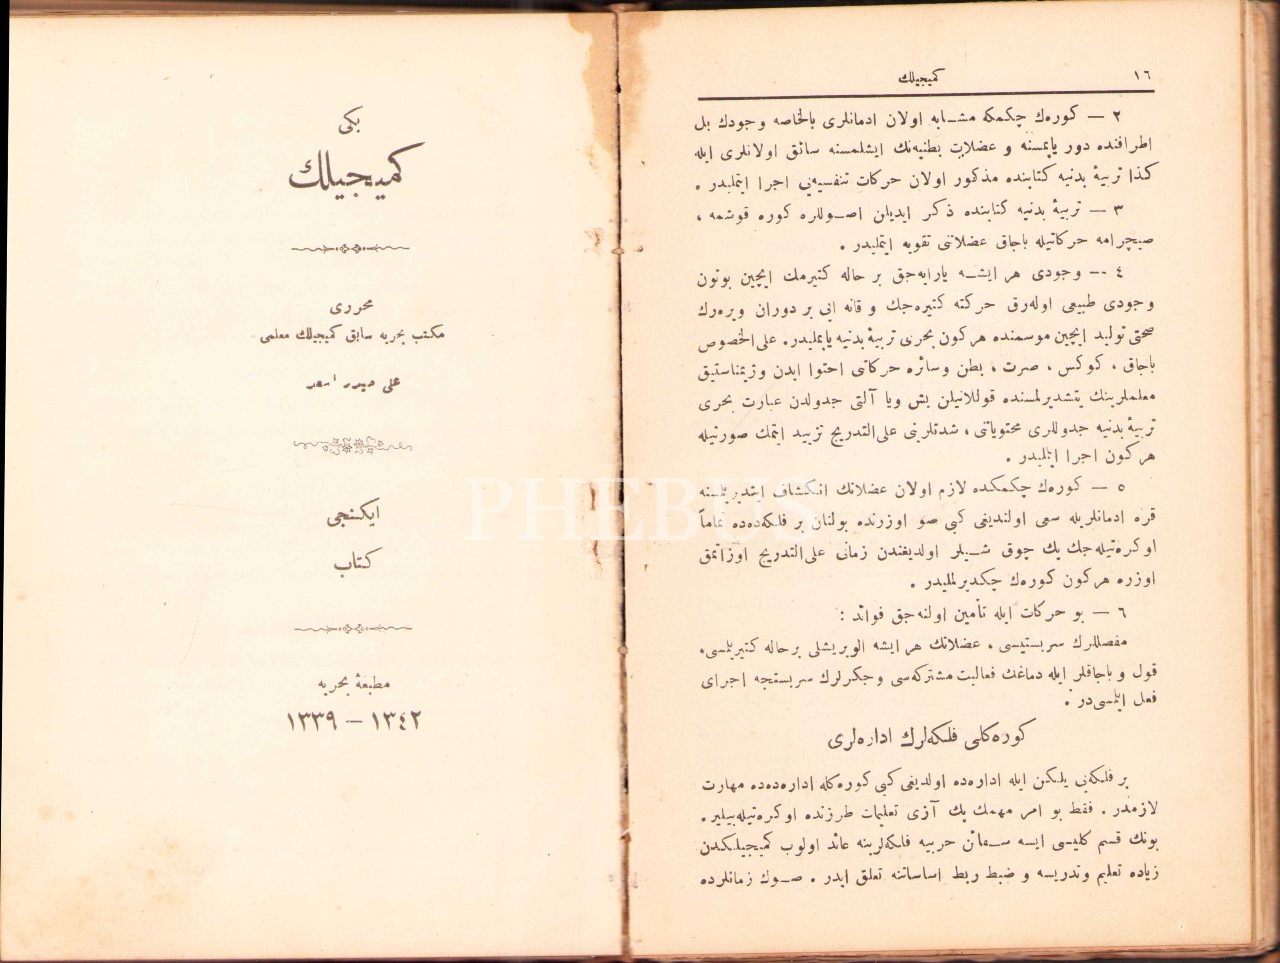 يكى
كميجيلك
محررى
مكتب بحريه سابق كميجيلك معلمى
على حيدر اسعد
ايكنجى
كتاب
مطبعۀ بحريه
١٣٤٢ – ١٣٣٩
١٦
كميجيلك
٢ — كوره‌ك چكمكه مشابه اولان ادمانلرى بالخاصه وجودك بل
اطرافنده دور ياپمسنه و عضلات بطنيه‌نك ايشلمسنه سائق اولانلرى ايله
كذا تربيۀ بدنيه كتابنده مذكور اولان حركات تنفسيه‌يى اجرا ايتمليدر .
٣ — تربيۀ بدنيه كتابنده ذكر ايديلن اصوللره كوره قوشمه ،
صيچرامه حركاتيله باجاق عضلاتنى تقويه ايتمليدر .
٤ — وجودى هر ايشه يارايه‌جق بر حاله كتيرمك ايچين بوتون
وجودى طبيعى اوله‌رق حركته كتيره‌جك و قانه ايى بر دوران ويره‌رك
صحتى توليد ايچين موسمنده هركون بحرى تربيۀ بدنيه ياپمليدر . على‌الخصوص
باجاق ، كوكس ، صرت ، بطن وسائره حركاتى احتوا ايدن وژيمناستيق
معلملرينك يتشديرلمسنده قوللانيلن بش ويا آلتى جدولدن عبارت بحرى
تربيۀ بدنيه جدوللرى محتوياتى ، شدتلرينى على‌التدريج تزييد ايتمك صورتيله
هركون اجرا ايتمليدر .
٥ — كوره‌ك چكمكده لازم اولان عضلاتك انكشاف ايتديريلمسنه
قره ادمانلريله سعى اولنديغى كبى صو اوزرنده بولنان بر فلكه‌ده‌ده تماماً
اوكره‌تيله‌جك پك چوق شيلر اولديغندن زمانى على‌التدريج اوزاتمق
اوزره هركون كوره‌ك چكديرلمليدر .
٦ — بو حركات ايله تأمين اولنه‌جق فوائد :
مفصللرك سربستيسى ، عضلاتك هر ايشه الويريشلى برحاله كتيريلمسى،
قول و باجاقلر ايله دماغك فعاليت مشتركه‌سى و جكرلرك سربستجه اجراى
فعل ايتمسى‌در .
كوره‌كلى فلكه‌لرك اداره‌لرى
بر فلكه‌يى يلكن ايله اداره‌ده اولديغى كبى كوره‌كله اداره‌ده‌ده مهارت
لازمدر . فقط بو امر مهمك پك آزى تعليمات طرزنده اوكره‌تيله‌بيلير .
بونك قسم كليسى ايسه سفائن حربيه فلكه‌لرينه عائد اولوب كميجيلكدن
زياده تعليم وتدريسه و ضبط ربط اساساتنه تعلق ايدر . صوك زمانلرده
PHEBUS